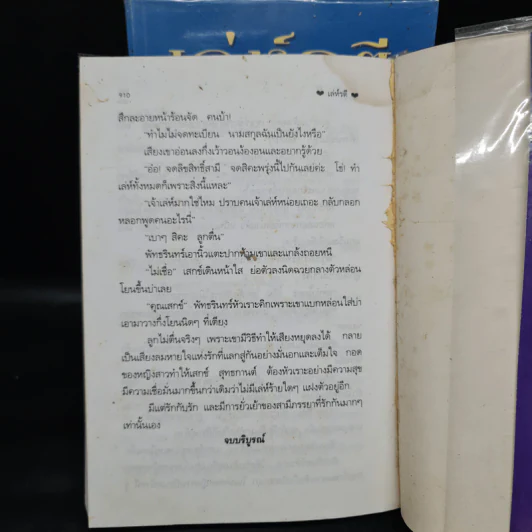 ๙๑๐
❤ เล่ห์รตี ❤
สึกละอายหน้าร้อนจัด คนบ้า!
"ทำไมไม่จดทะเบียน นามสกุลฉันเป็นยังไงหรือ"
เสียงเขาอ่อนลงกึ่งเว้าวอนง้องอนและอยากรู้ด้วย
"อ๋อ! จดลิขสิทธิ์สามี จดสิคะพรุ่งนี้ไปกันเลยค่ะ โธ่! ทำ
เล่ห์ทั้งหมดก็เพราะสิ่งนี้แหละ"
"เจ้าเล่ห์มากใช่ไหม ปราบคนเจ้าเล่ห์หน่อยเถอะ กลับกลอก
หลอกพูดคนอะไรนี่"
"เบาๆ สิคะ ลูกตื่น"
พัทธรินทร์เอานิ้วแตะปากห้ามเขาและแกล้งถอยหนี
"ไม่เชื่อ" เสกข์เดินหน้าใส่ ย่อตัวลงนิดฉวยกลางตัวหล่อน
โยนขึ้นบ่าเลย
"คุณเสกข์" พัทธรินทร์หัวเราะคิกเพราะเขาแบกหล่อนใส่บ่า
เอามาวางกึ่งโยนนิดๆ ที่เตียง
ลูกไม่ตื่นจริงๆ เพราะเขามีวิธีทำให้เสียงหยุดลงได้ กลาย
เป็นเสียงลมหายใจแห่งรักที่แลกสู่กันอย่างมั่นอกและเต็มใจ กอด
ของหญิงสาวทำให้เสกข์ สุทธกานต์ ต้องหัวเราะอย่างมีความสุข
มีความเชื่อมั่นมากขึ้นกว่าเดิมว่าไม่มีเล่ห์ร้ายใดๆ แฝงตัวอยู่อีก
มีแต่รักกับรัก และมีการยั่วเย้าของสามีภรรยาที่รักกันมากๆ
เท่านั้นเอง
จบบริบูรณ์